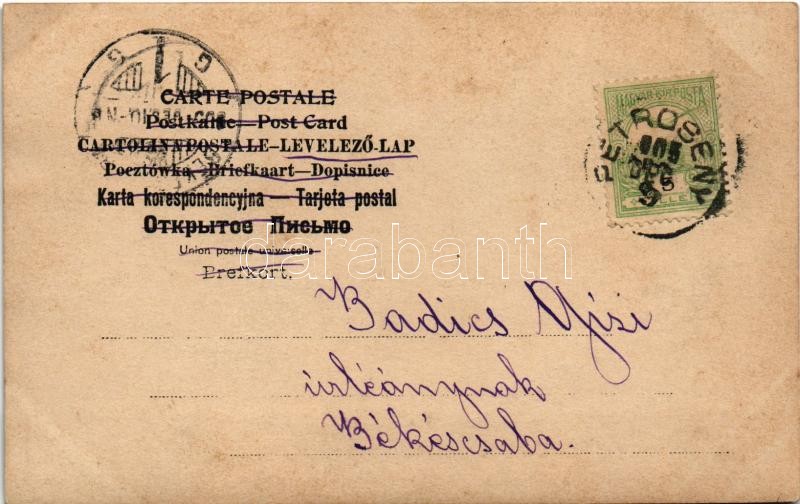 CARTE POSTALE
Postkarte – Post Card
CARTOLINA POSTALE – LEVELEZŐ-LAP
Pocztówka – Briefkaart – Dopisnice
Karta korespondencyjna – Tarjeta postal
Открытое Письмо
Union postale universelle
Brefkort.
MAGYAR KIR. POSTA
PETROSENY
905
DEC
9
darabanth
Badics Gizi
úrleánynak
Békéscsaba.